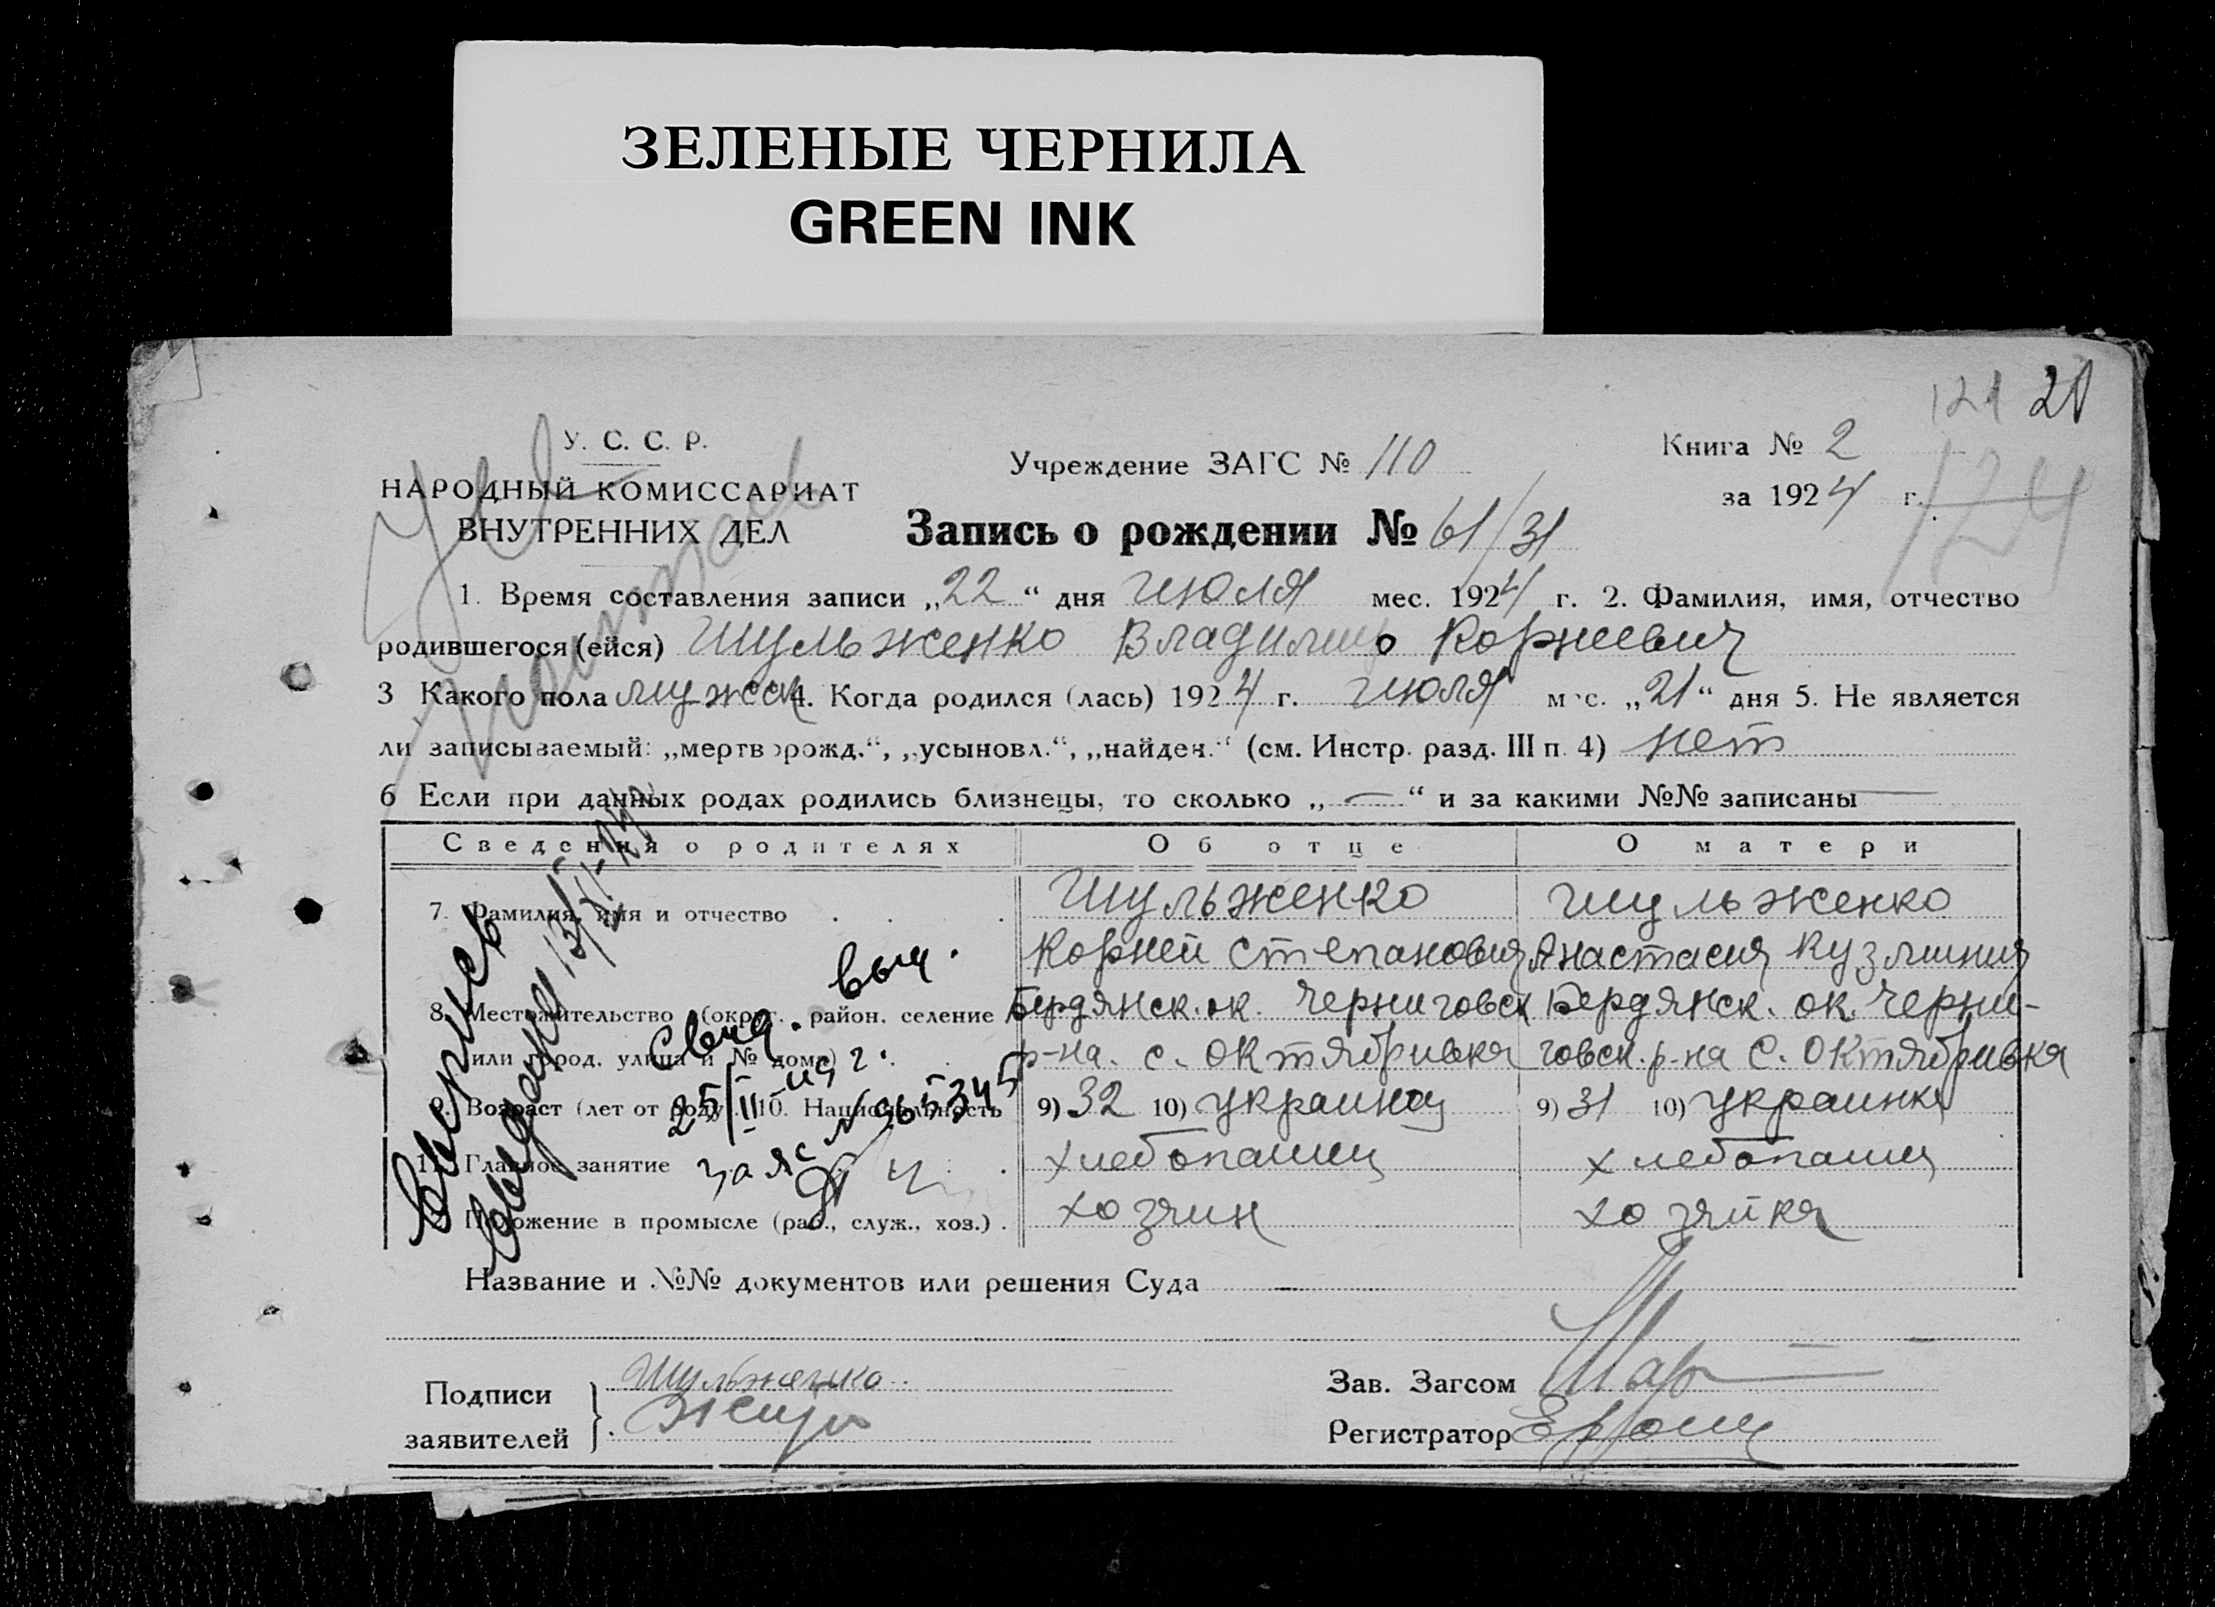 ЗЕЛЕНЫЕ ЧЕРНИЛА
GREEN INK
121 21
124
У. С. С. Р.
НАРОДНЫЙ КОМИССАРИАТ
ВНУТРЕННИХ ДЕЛ
Учреждение ЗАГС № 110
Книга № 2
за 1924 г.
Запись о рождении № 61/31
1. Время составления записи „22“ дня июля мес. 1924 г. 2. Фамилия, имя, отчество
родившегося (ейся) Шульженко Владимир Корнеевич
3 Какого пола мужск 4. Когда родился (лась) 1924 г. июля мес. „21“ дня 5. Не является
ли записываемый: „мертворожд.“, „усыновл.“, „найден.“ (см. Инстр. разд. III п. 4) нет
6 Если при данных родах родились близнецы, то сколько „—“ и за какими №№ записаны —
Сведения о родителях Об отце О матери
7. Фамилия, имя и отчество Шульженко Шульженко
Корней Степанович Анастасия Кузминич
8. Местожительство (округ., район, селение Бердянск. ок. Черниговск Бердянск. ок. Черни-
или город, улица и № дома) р-на. с. Октябривка говск. р-на С. Октябривка
9. Возраст (лет от роду) 10. Национальность 9) 32 10) украинец 9) 31 10) украинка
11. Главное занятие хлебопашец хлебопашец
Положение в промысле (раб., служ., хоз.) хозяин хозяйка
Название и №№ документов или решения Суда —
Подписи заявителей Шульженко
Зав. Загсом
Регистратор
Свид. выд.
25/II
№ 365345